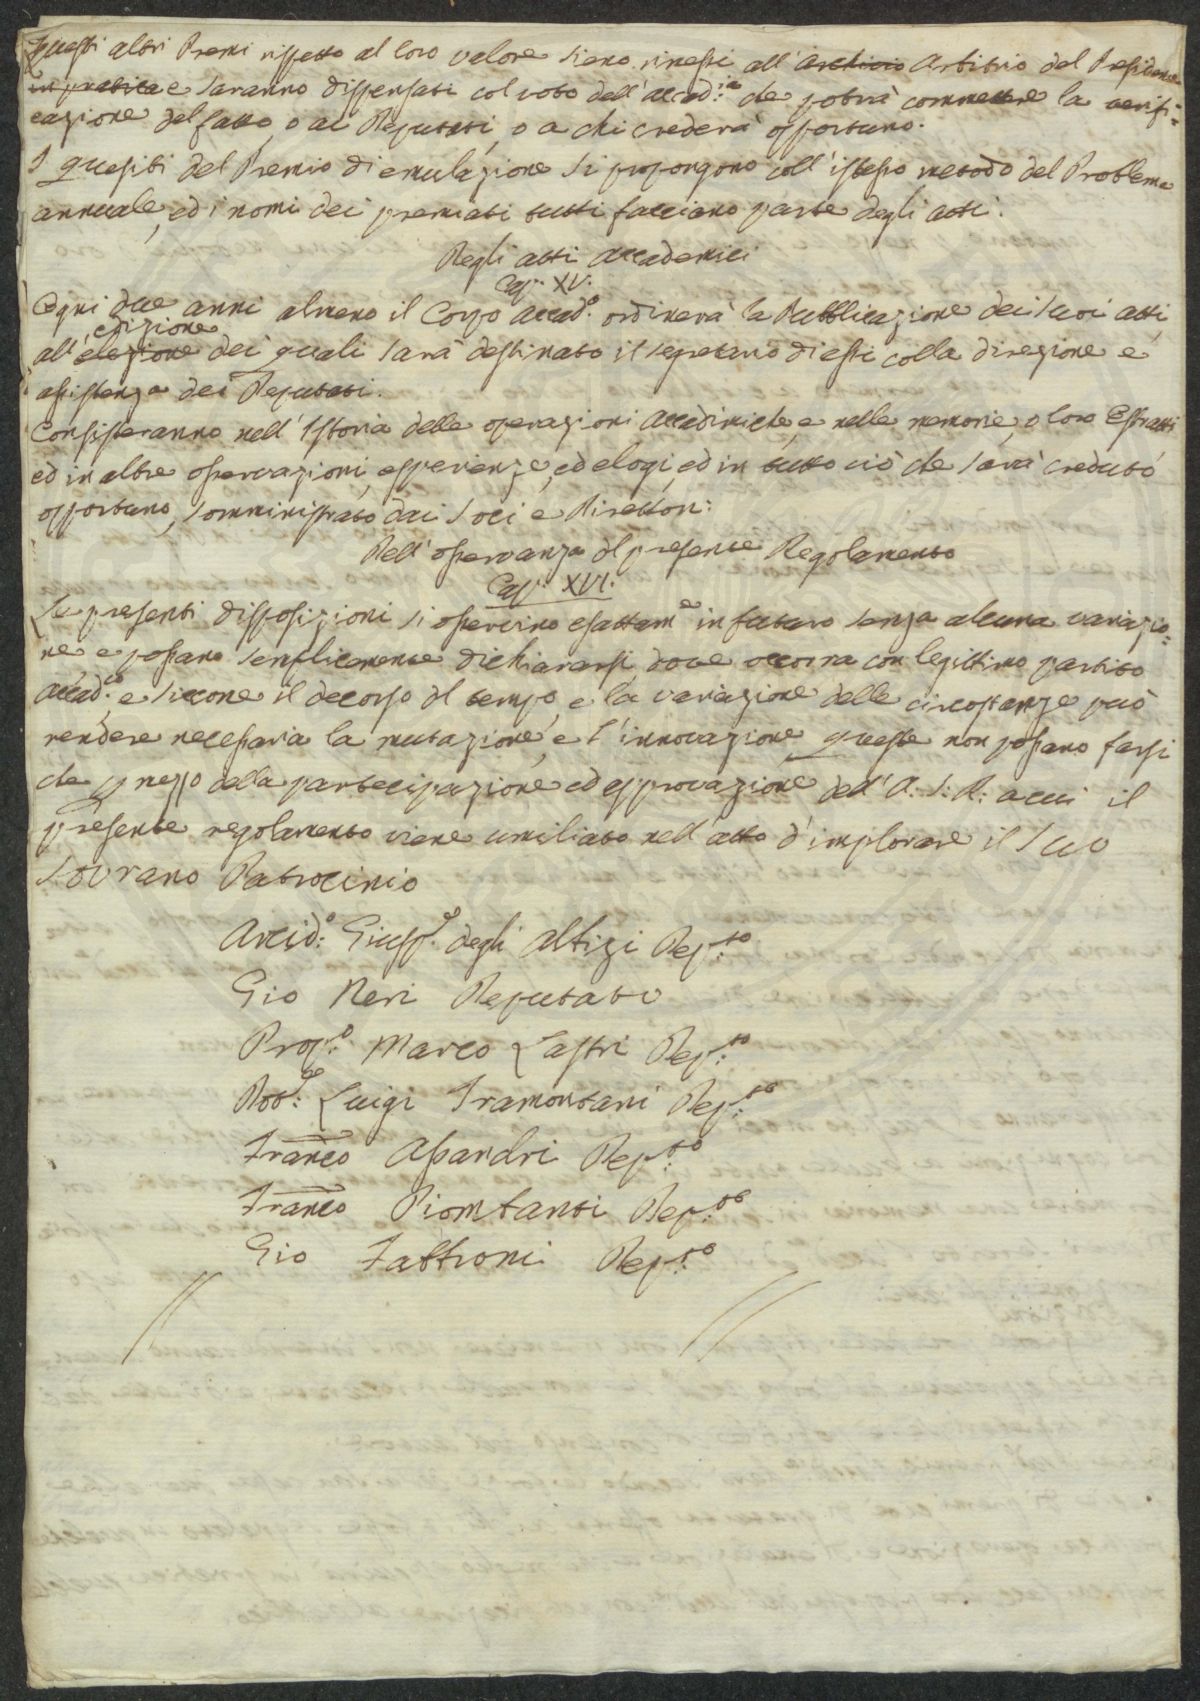 Questi altri Premi rispetto al loro valore siano rimessi all' Archivio Arbitrio del Presidente
in pratica e saranno dispensati col voto dell'Accad:ia che potrà commettere la verifi-
cazione del fatto, o ai Deputati, o a chi crederà opportuno.
I Quesiti del Premio di emulazione si propongono coll'istesso metodo del Problema
annuale, ed i nomi dei premiati tutti facciano parte degli atti.
Degli atti Accademici
Cap: XV.
Ogni due anni almeno il Corpo Accad:o ordinerà la Pubblicazione dei suoi atti,
edizione
all'elezione dei quali sarà destinato il segretario di essi colla direzione e
assistenza dei Deputati.
Consisteranno nell'Istoria delle operazioni Accademiche, e nelle memorie, o loro Estratti
ed in altre osservazioni, esperienze, ed elogi, ed in tutto ciò che sarà creduto
opportuno, somministrato dai Soci e Direttori:
Dell'osservanza del presente Regolamento
Cap: XVI.
Le presenti disposizioni si osservino esattam.e in futuro senza alcuna variazio-
ne e possano semplicemente dichiararsi, dove occorra con legittimo partito
Accad:o e siccome il decorso del tempo, e la variazione delle circostanze può
rendere necessaria la mutazione, e l'innovazione, queste non possano farsi
che p mezzo della partecipazione ed approvazione dell'A: S: R: a cui il
presente regolamento viene umiliato nell'atto d'implorare il Suo
Sovrano Patrocinio
Arcid:o Giusp.e degli Albizi Dep:to
Gio Neri Deputato
Prop:o Marco Lastri Dep:to
Dot:re Luigi Tramontani Dep:to
Franco Assandri Dep:to
Franco Piombanti Dep:to
Gio Fabbroni Dep:to